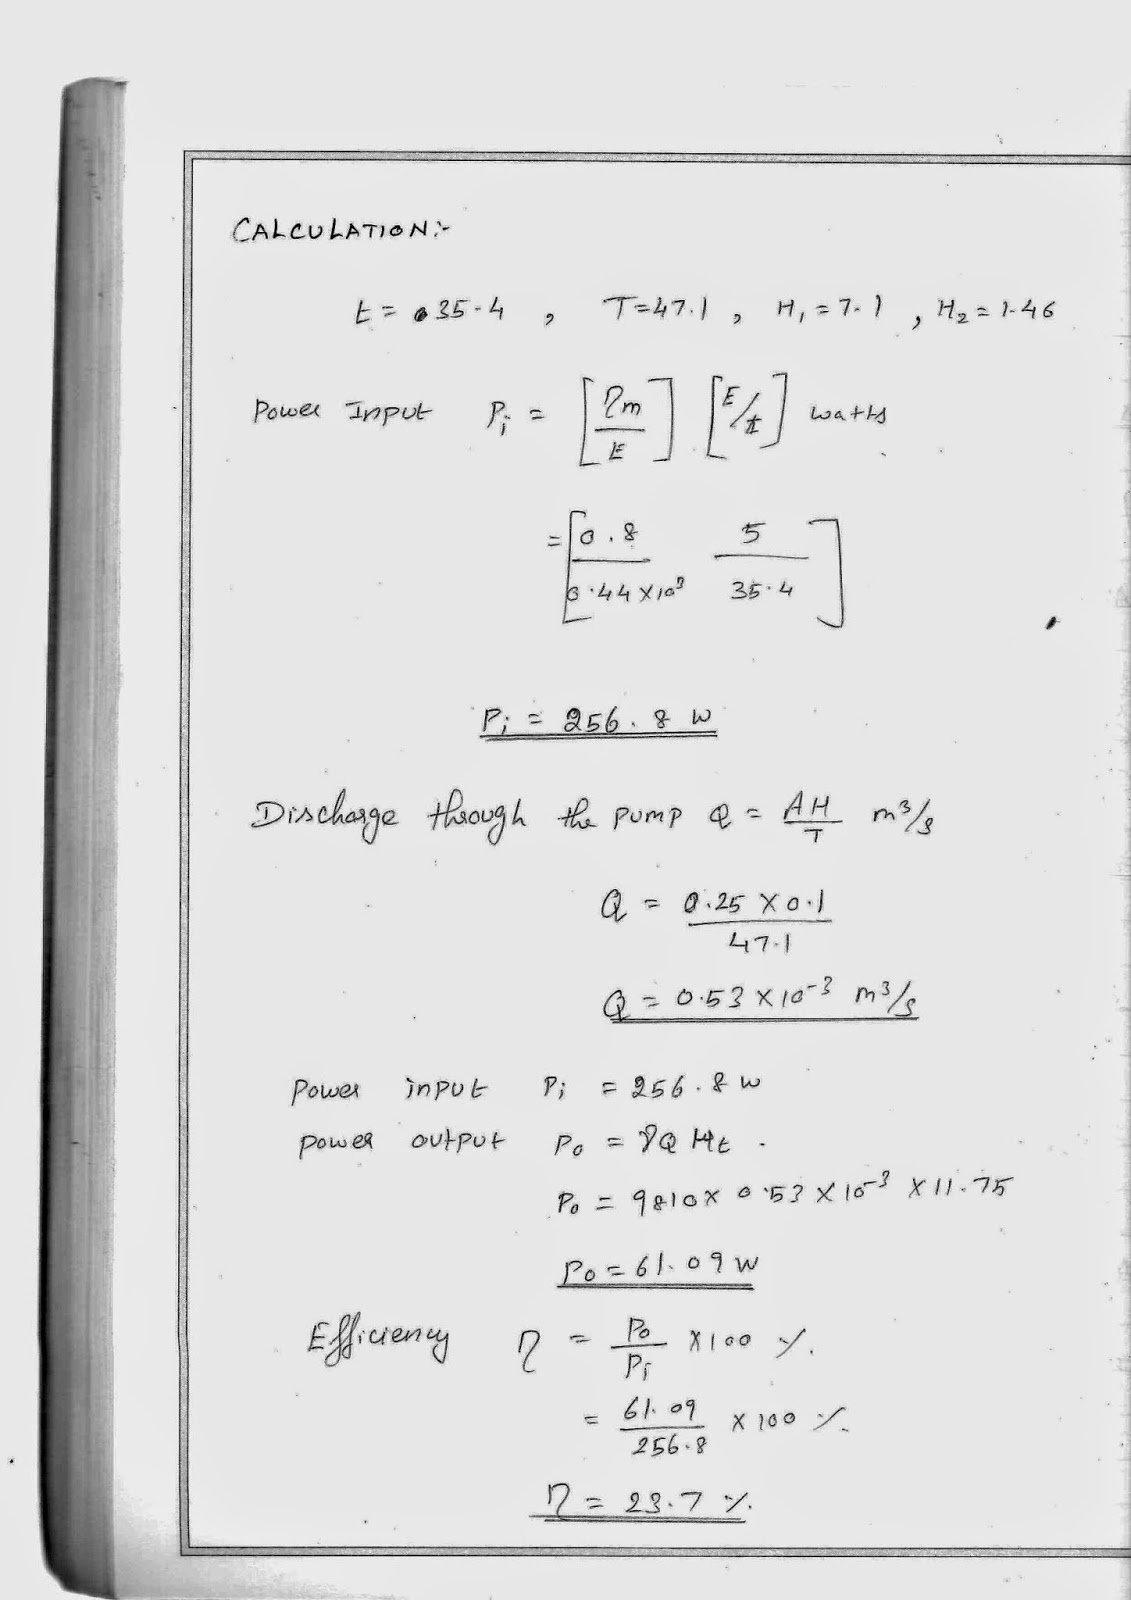 CALCULATION:-
t = 35.4 , T=47.1 , H₁ = 7.1 , H₂ = 1.46
Power Input Pi = [ηm/E] [E/t] watts
= [0.8/0.44 × 10³ 5/35.4]
Pi = 256.8 W
Discharge through the pump Q = AH/T m³/s
Q = 0.25 × 0.1/47.1
Q = 0.53 × 10⁻³ m³/s
Power input Pi = 256.8 W
power output Po = γQ Ht .
Po = 9810 × 0.53 × 10⁻³ × 11.75
Po = 61.09 W
Efficiency η = Po/Pi × 100 %.
= 61.09/256.8 × 100 %.
η = 23.7 %.